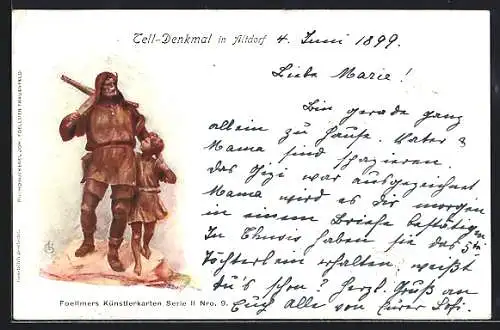 Tell-Denkmal in Altdorf
4. Juni 1899.
Liebe Marie!
Bin gerade ganz
allein zu Hause. Vater &
Mama sind spazieren.
Das Gizi war ausgezeichnet
Mama wird es dir morgen
in einem Briefe bestätigen
In Thusis haben sie das 5te
Töchterlein erhalten, weißt
du's schon? Herzl. Gruß an
Euch alle von Eurer Sofi.
Foellmers Künstlerkarten Serie II Nro. 9.
Gesetzlich geschützt.